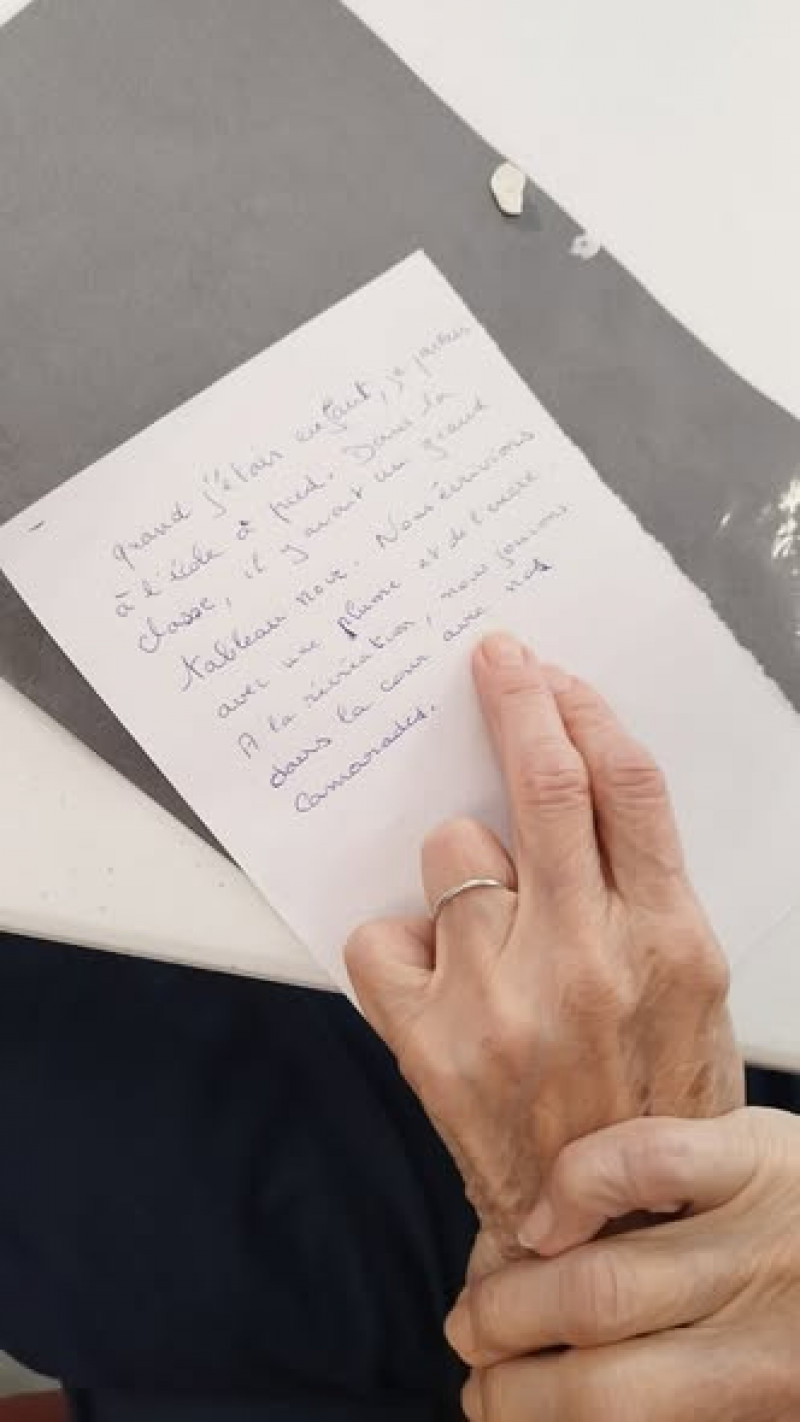 quand j'étais enfant, je partais
à l'école à pied. Dans la
classe, il y avait un grand
tableau noir. Nous écrivions
avec une plume et de l'encre.
A la récréation, nous jouions
dans la cour avec nos
camarades.